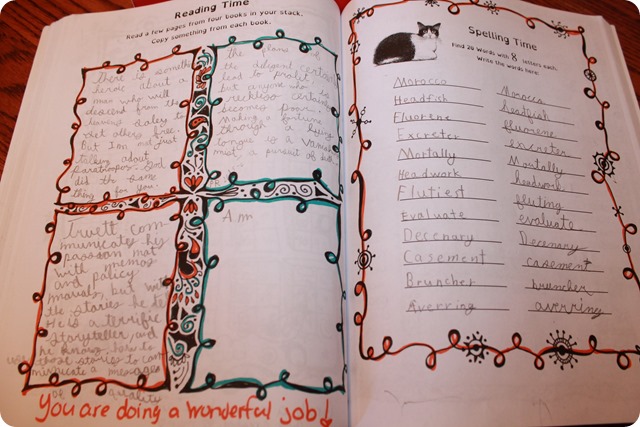 Reading Time
Read a few pages from four books in your stack.
Copy something from each book.
There is somethi
heroic about a
man who will
descend from the
heavens
others free.
But I'm not just
talking about
paratroopers. God
did the same
thing for you.
the plans of
the diligent certainly
lead to profit
but anyone who
reckless certainly
becomes poor
Making a fortune
through a lying
tongue is a
mist, a pursuit of
Truett com-
municates his
passion not
with memos
and policy
manuals, but with
the stories he tells
He is a terrific
storyteller, and
he knows how to
use those stories to com
municate a message
of quality
Am
You are doing a wonderful job!
Spelling Time
Find 20 Words with 8 letters each.
Write the words here:
Morocco
Headfish
Fluorene
Excreter
Mortally
Headwork
Flutiest
Evaluate
Decenary
Casement
Bruncher
Averring
Morocco
headfish
fluorene
excreter
Mortally
headwork
fluting
evaluate
Decenary
casement
bruncher
averring